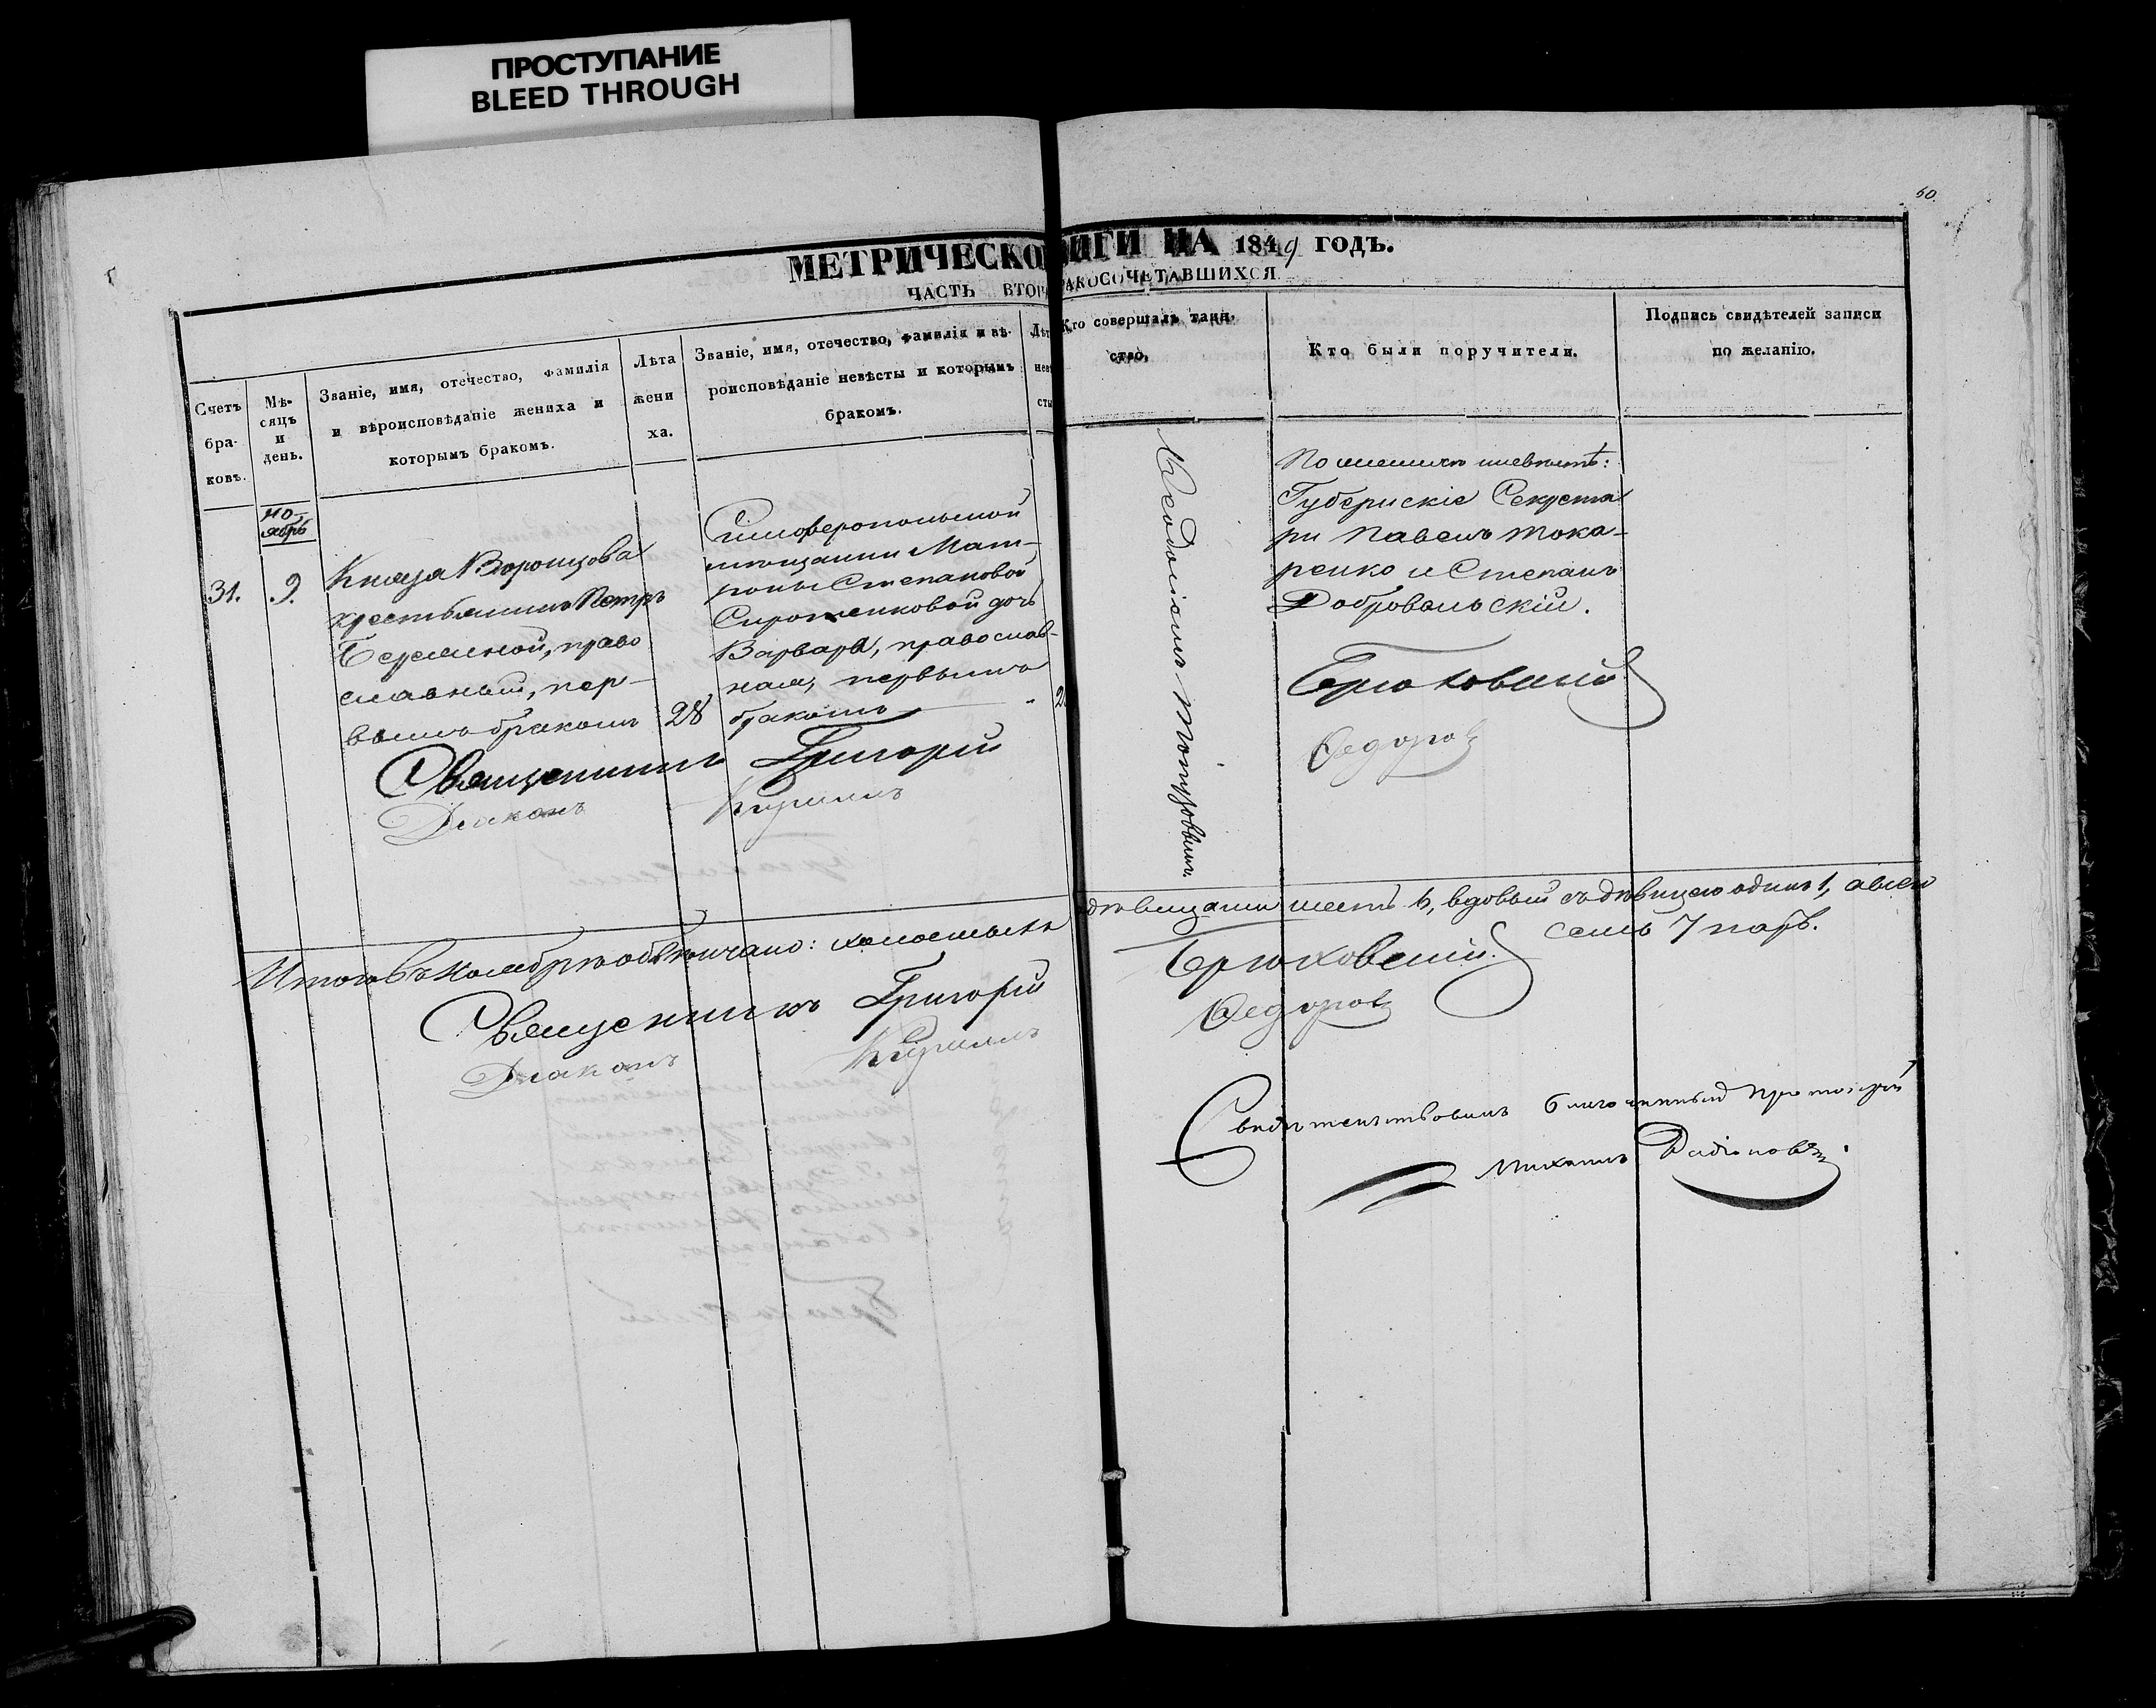 ПРОСТУПАНИЕ
BLEED THROUGH
60.
МЕТРИЧЕСКО ИГИ НА 1849 ГОДЪ.
ЧАСТЬ ВТОР АКОСОЧЕТАВШИХСЯ.
Счетъ бра- ковъ.
Мѣ- сяцъ и день.
Званіе, имя, отечество, фамилія
и вѣроисповѣданіе жениха и
которымъ бракомъ.
Лѣта жени ха.
Званіе, имя, отечество, фамилія и вѣ-
роисповѣданіе невѣсты и которымъ
бракомъ.
Лѣт нев сты
Кто совершалъ таин-
ство.
Кто были поручители.
Подпись свидѣтелей записи
по желанію.
но-
ябрь
31. 9.
Князя Воронцова
крестьянинъ Петръ
право
славный, пер-
вымъ бракомъ 28
Симферопольской
мѣщанки Мат-
роны Степановой
дочь
Варвара, православ-
ная, первымъ
бракомъ 2
По женихѣ и невѣстѣ:
Губернскіе Секрета
ри Павелъ Тока-
ренко и Степанъ
Добровольскій.
Священникъ Григорій Брюховскій
Діаконъ Кириллъ Федоровъ
Итого въ Ноябрѣ обвѣнчано: холостыхъ съ дѣвицами шесть 6, вдовый съ дѣвицею одинъ 1, а всего
семь 7 паръ.
Священникъ Григорій Брюховскій.
Діаконъ Кириллъ Федоровъ
Свидѣтельствовалъ благочинный Протоіерей
Михаилъ Родіоновъ.